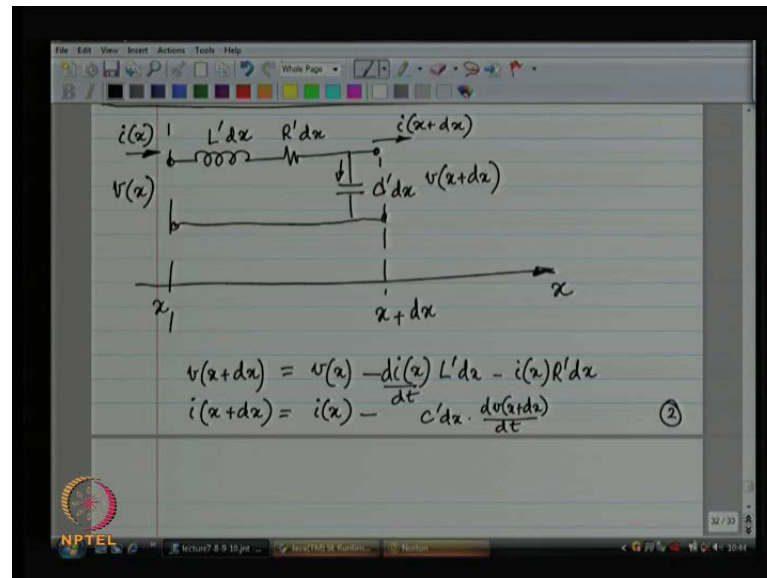 File Edit View Insert Actions Tools Help
Whole Page
B I
i(x) L'dx R'dx i(x+dx)
v(x) c'dx v(x+dx)
x x+dx x
v(x+dx) = v(x) - di(x)/dt L'dx - i(x)R'dx
i(x+dx) = i(x) - c'dx · dv(x+dx)/dt ②
32 / 33
NPTEL
lecture7-8-9 10.jnt - ... Java(TM) SE Runtim... Norton
10:44